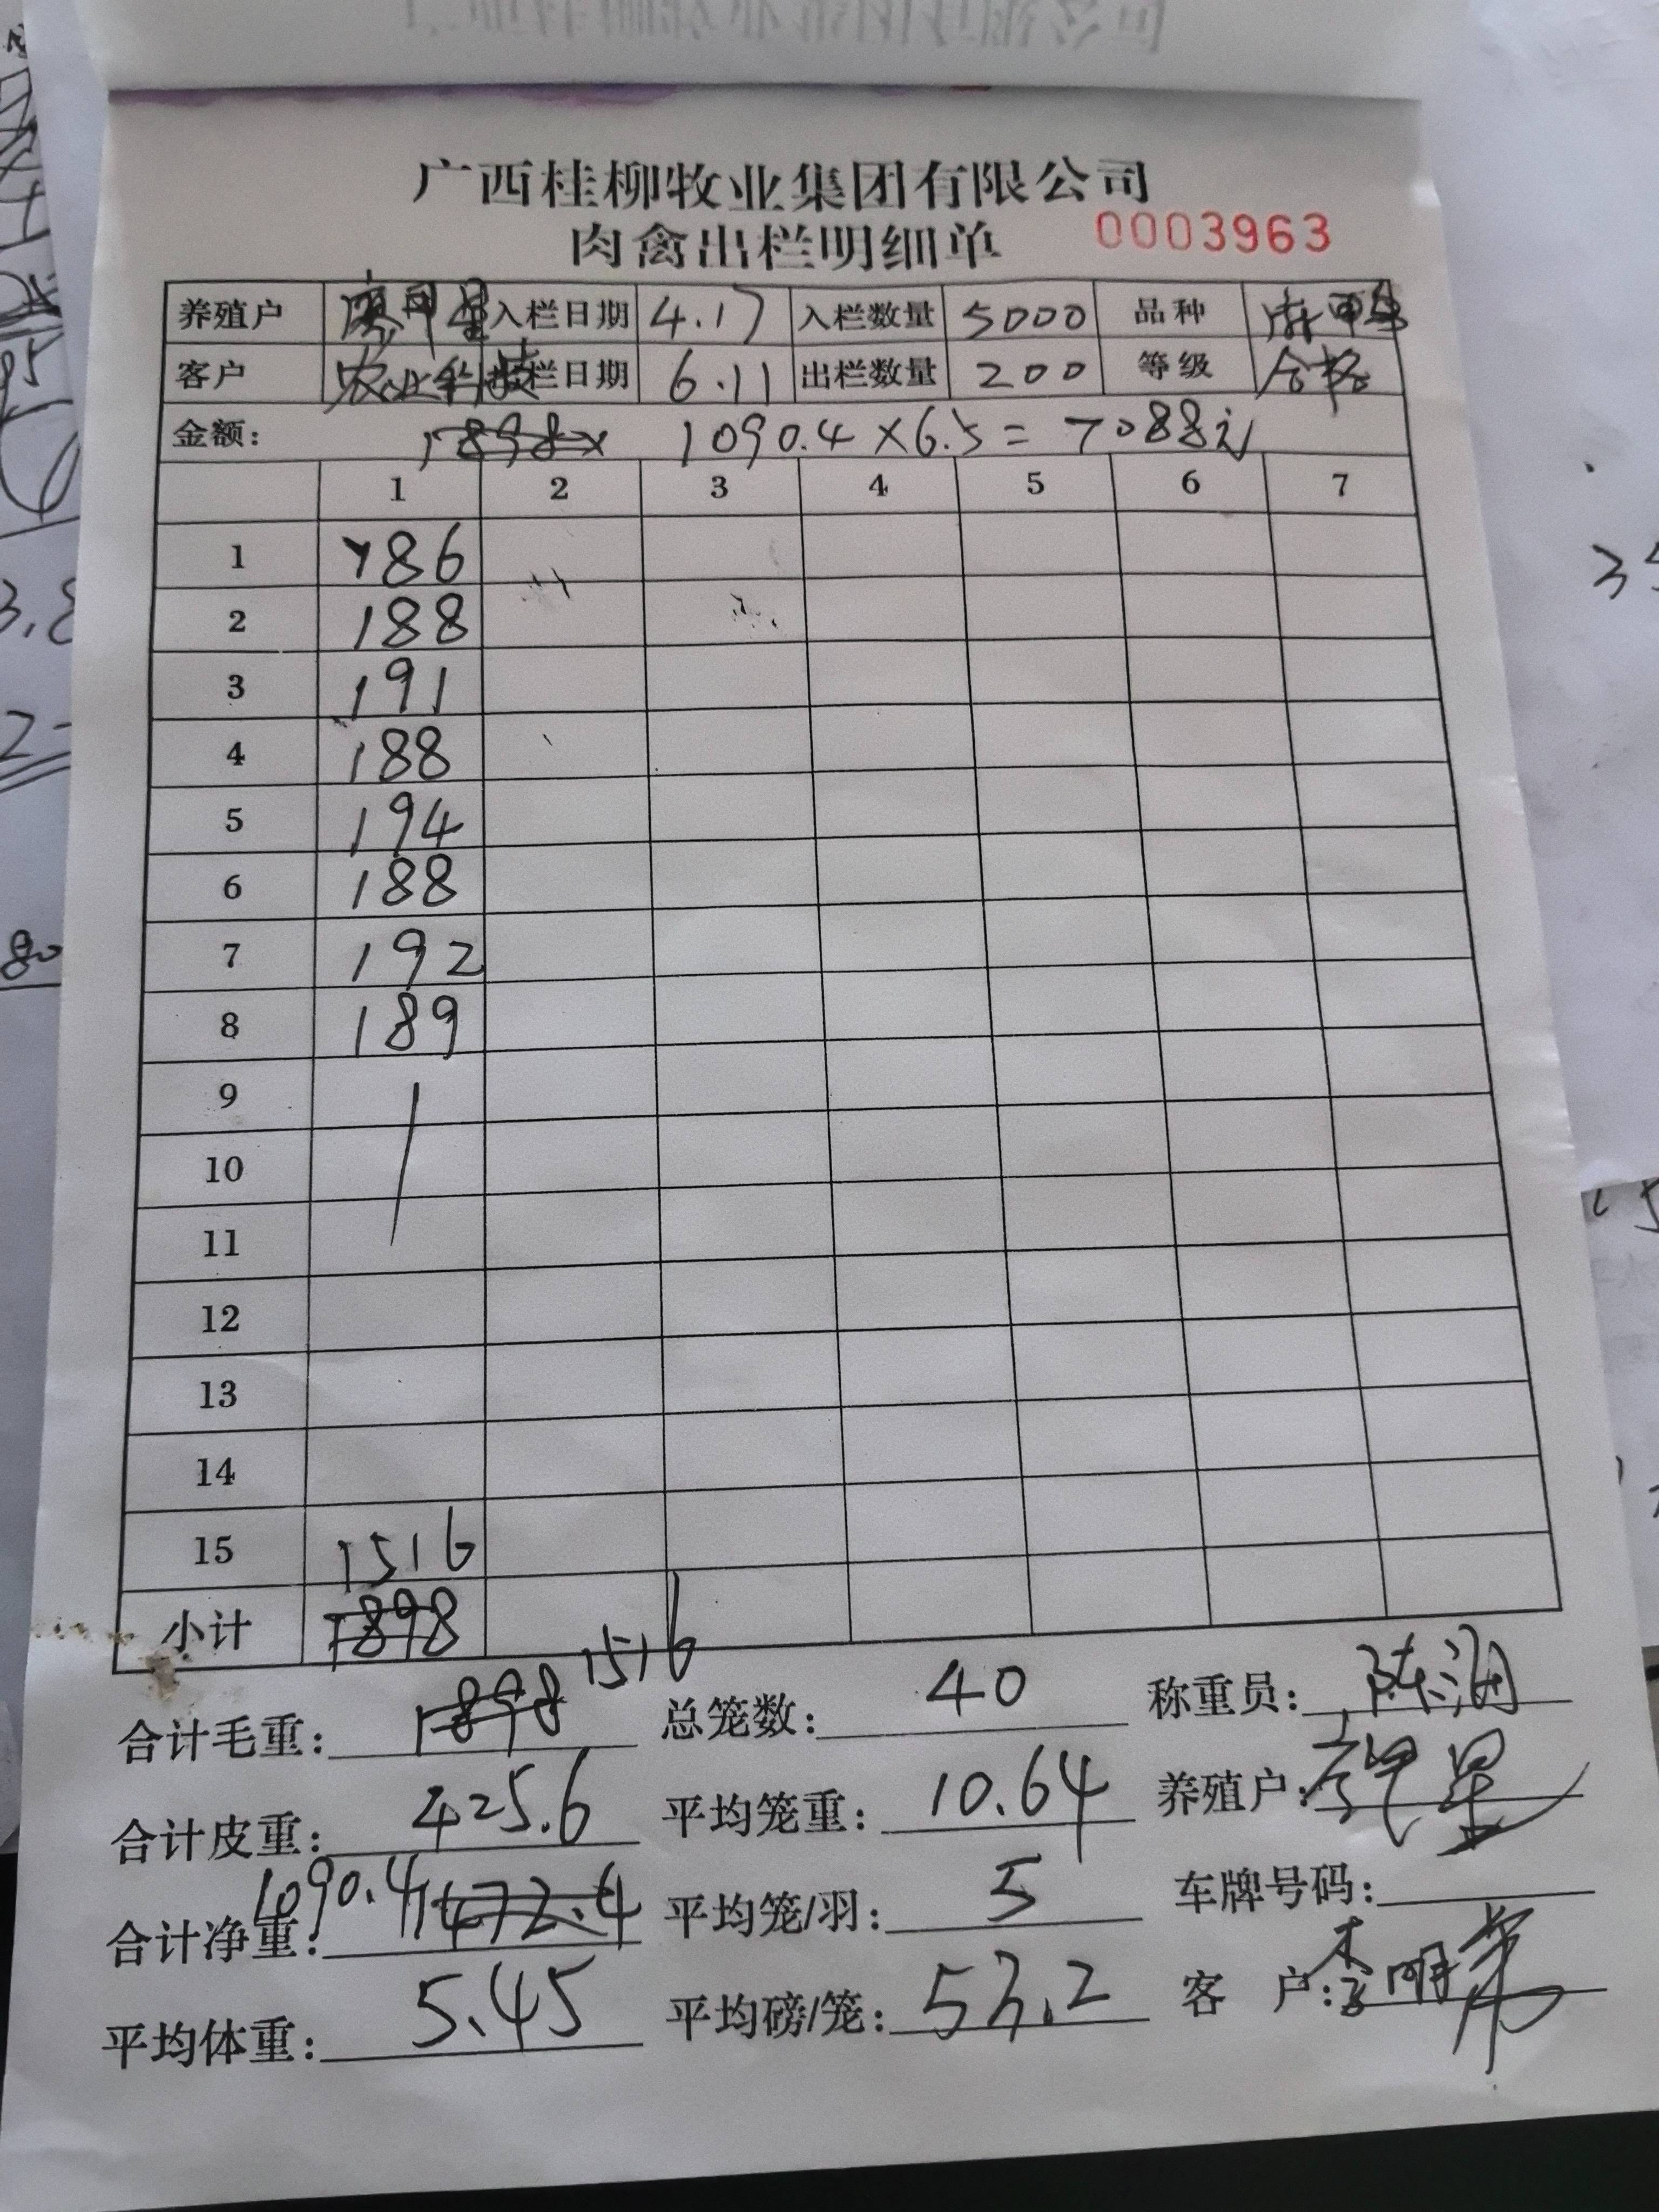 广西桂柳牧业集团有限公司
肉禽出栏明细单 0003963
养殖户 入栏日期 4.17 入栏数量 5000 品种 麻鸭
客户 农业科技 出栏日期 6.11 出栏数量 200 等级 合格
金额: 1898× 1090.4×6.5=7088元
1 2 3 4 5 6 7
1 186
2 188
3 191
4 188
5 194
6 188
7 192
8 189
9
10
11
12
13
14
15 1516
小计 1898
合计毛重: 1898 1516 总笼数: 40 称重员: 陈
合计皮重: 425.6 平均笼重: 10.64 养殖户:
合计净重: 1090.4 1472.4 平均笼/羽: 5 车牌号码:
平均体重: 5.45 平均磅/笼: 53.2 客 户: 李明